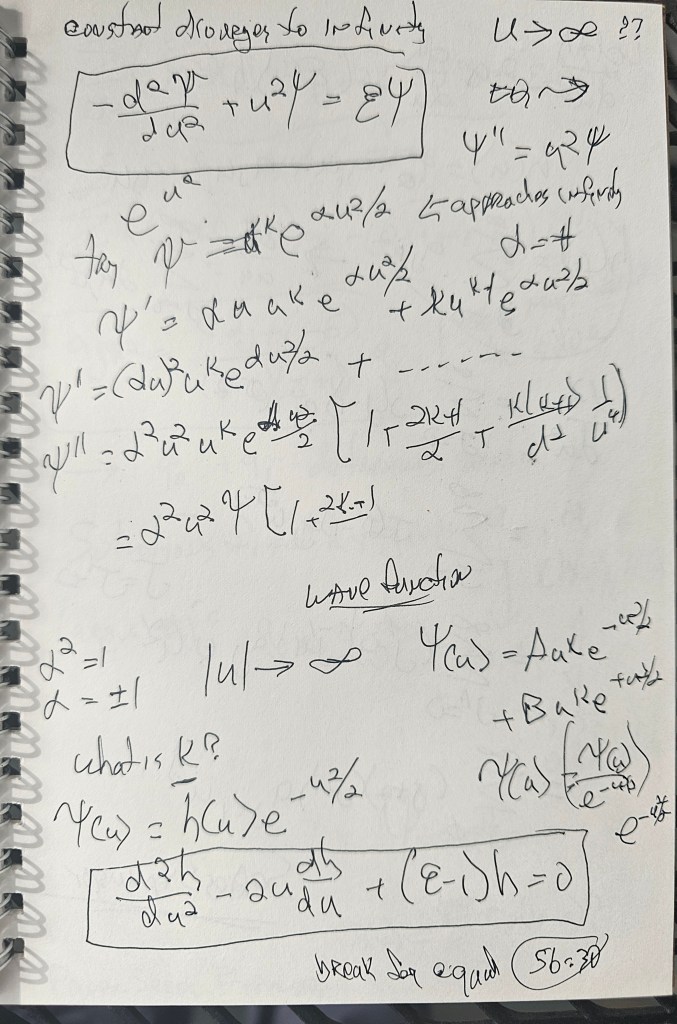 constant diverges to infinity u → ∞ ??
-d²ψ/du² + u²ψ = Ɛψ
ψ'' = u²ψ
e^u²
try ψ = u^k e^αu²/2 ← approaches infinity
α = #
ψ' = αu u^k e^αu²/2 + ku^k-1 e^αu²/2
ψ' = (αu)² u^k e^αu²/2 + -------
ψ'' = α²u² u^k e^αu²/2 [1 + 2k+1/α + k(k+1)/α² 1/u⁴)
= α²u²ψ [1 + 2k+1
wave function
α² = 1
α = ±1
|u| → ∞
ψ(u) = Au^k e^-u²/2
+ Bu^k e^+u²/2
what is k?
ψ(u) = h(u) e^-u²/2
ψ(u) (ψ(u)/e^-u²/2) e^-u²/2
d²h/du² - 2u dh/du + (Ɛ-1)h = 0
break for equal 56:30